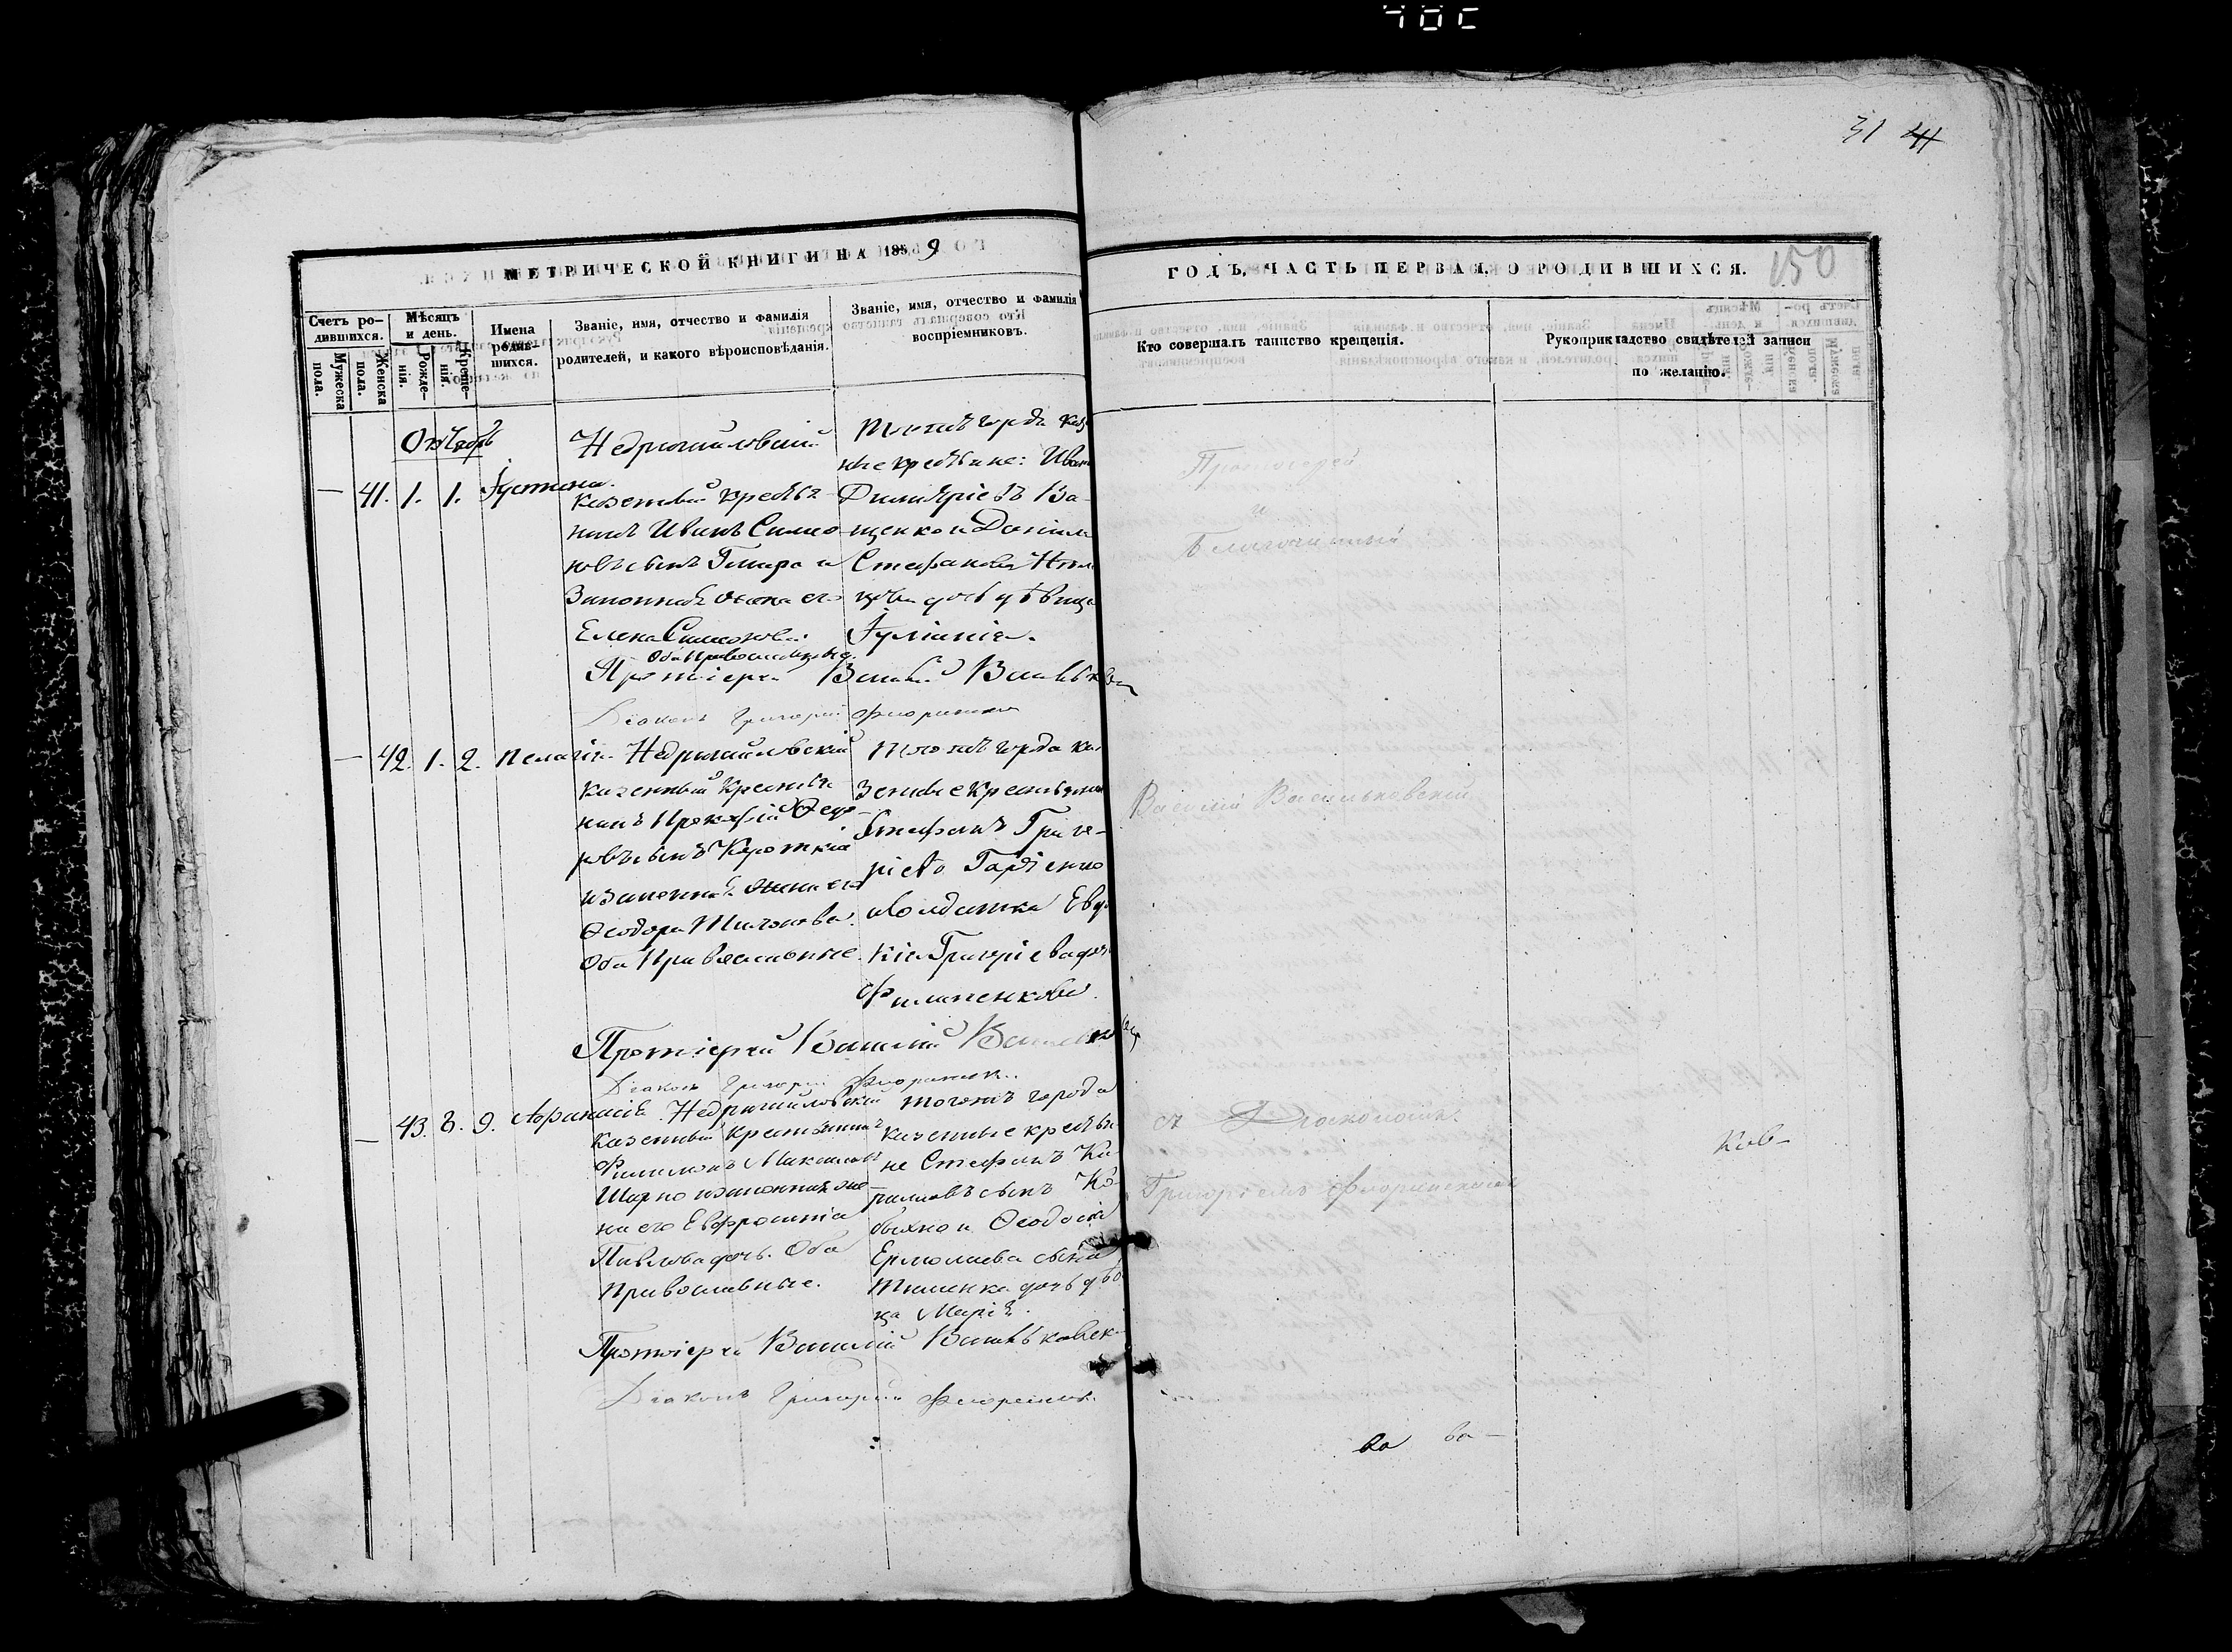 31 41
150
МЕТРИЧЕСКОЙ КНИГИ НА 1859
ГОДЪ, ЧАСТЬ ПЕРВАЯ, О РОДИВШИХСЯ.
Счетъ ро-
дившихся.
Мужеска
пола.
Женска
пола.
Мѣсяцъ
и день.
Рожде-
нія.
Креще-
нія.
Имена
родив-
шихся.
Званіе, имя, отчество и фамилія
родителей, и какого вѣроисповѣданія.
Званіе, имя, отчество и фамилія
воспріемниковъ.
Кто совершалъ таинство крещенія.
Рукоприкладство свидѣтелей записи
по желанію.
Октябрь
41. 1. 1. Іустина.
Недригайловскій
казенный крестья-
нинъ Иванъ Симо-
новъ сынъ и
Законная жена его
Елена Симонова.
Оба Православные.
города каз
ные крестьяне: Иванъ
Димитріевъ Ва-
щенко и Даніила
Стефанова
дочь дѣвица
Іуліанія.
Протоіерей Василій Васильковск
Діаконъ Григорій Флоринск
42. 1. 2. Пелагія.
Недригайловскій
казенный крестья-
нинъ Прокофій Ѳедо-
ровъ сынъ Короткій
и законная жена его
Ѳеодора Тихонова.
Оба Православные.
города ка-
зенные крестьяни
Стефанъ Григо-
ріевъ
солдатка Евдо
кія Григоріева дочь
Филипенкова.
Протоіерей Василій Васильков
Діаконъ Григорій Флоринск.
43. 8. 9. Афанасія.
Недригайловскій
казенный крестьянинъ
Филимонъ Максимовъ
Шахно и законная же-
на его Евфросинія
Павлова дочь. Оба
Православные.
тогожъ города
казенные крестья-
не Стефанъ Ки-
риловъ сынъ Ко-
быхно и Ѳеодосія
Ермолаева сына
дочь дѣви
ца Марія.
Протоіерей Василій Васильковск
Діаконъ Григорій Флоринск
Протоіерей
и
Благочинный
Василій Васильковскій
съ Діакономъ
Григоріемъ Флоринскимъ
ков-
ва-